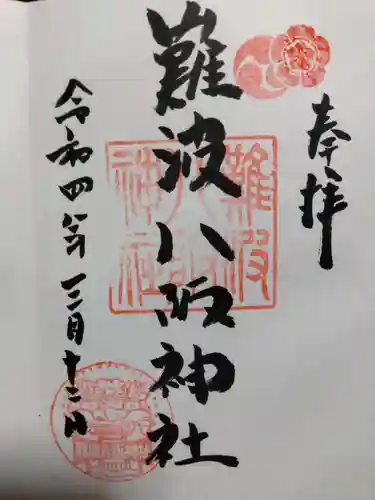 奉拝
難波八阪神社
令和四年十二月十二日
難波
八阪
神社